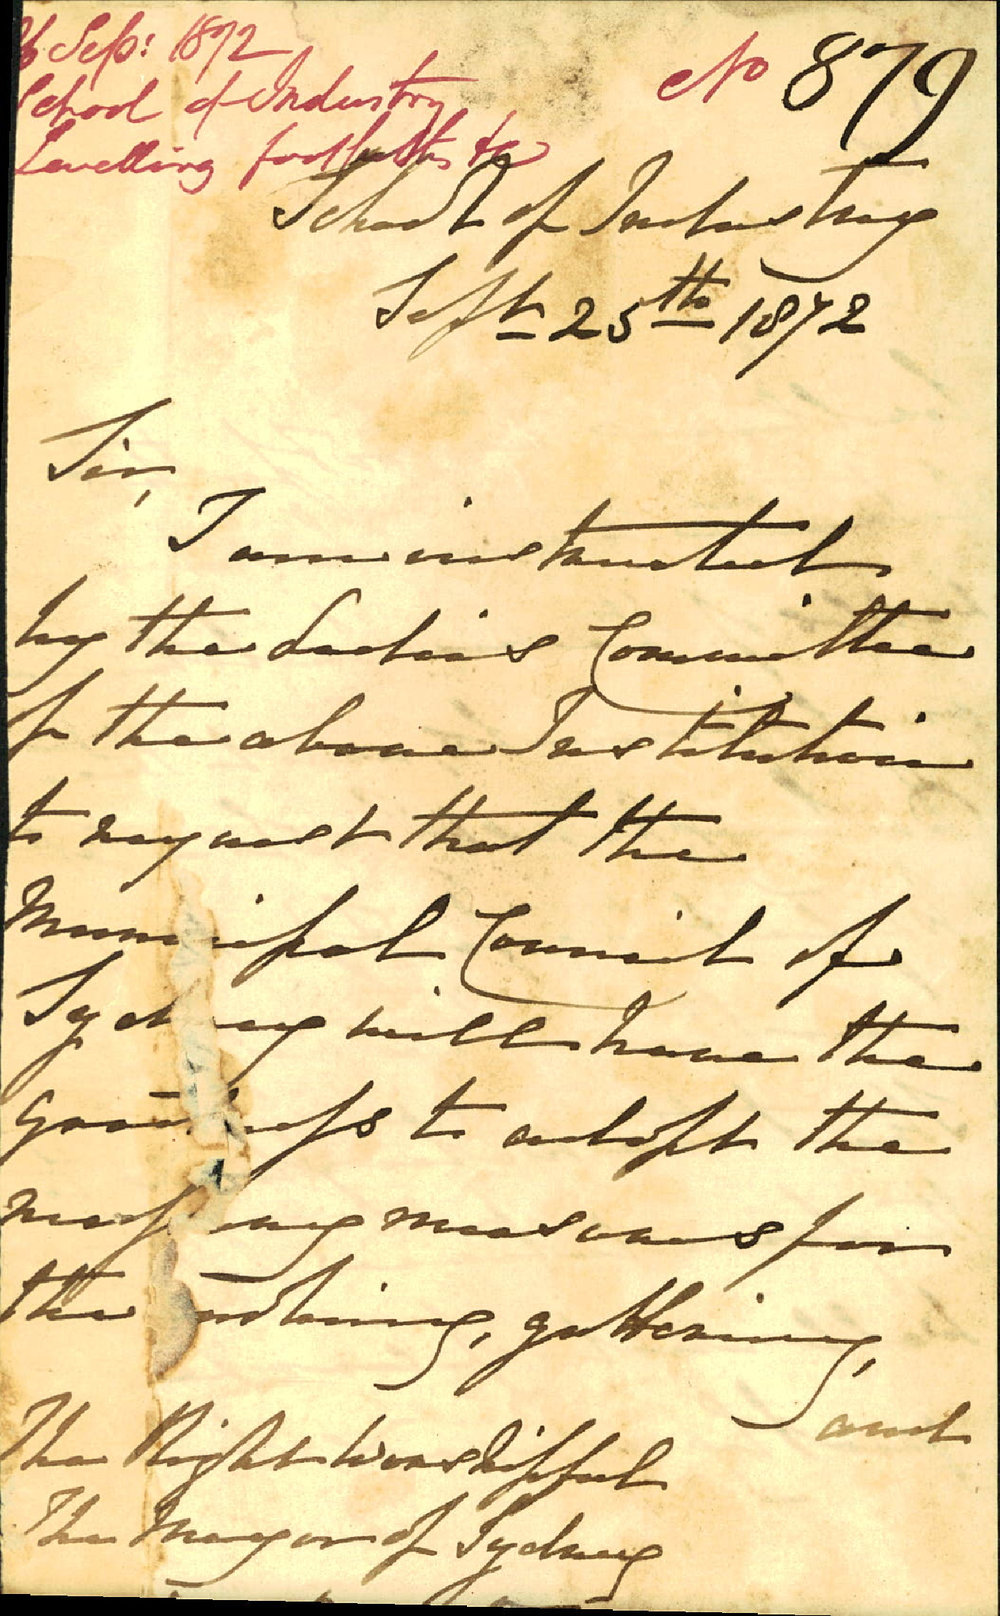 26 Sep: 1872
School of Industry
Levelling footpaths &c
No 879
School of Industry
Septr 25th 1872
Sir,
I am instructed
by the Ladies Committee
of the above Institution
to request that the
Municipal Council of
Sydney will have the
goodness to adopt the
necessary measures for
the kerbing, guttering,
and
The Right Worshipful
The Mayor of Sydney